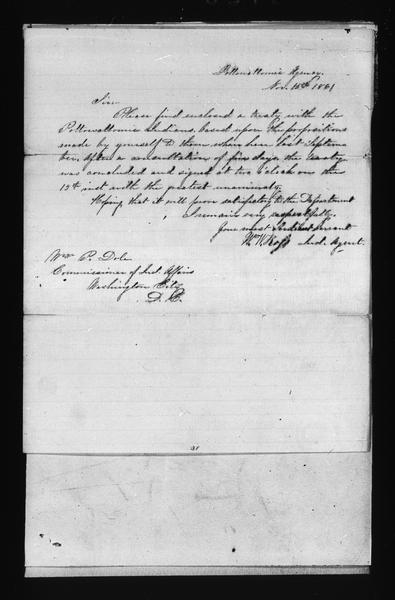 Pottowattomie Agency.
Nov. 15th 1861
Sir.
Please find enclosed a treaty with the
Pottowattomie Indians, based upon the propositions
made by yourself to them when here last Septem-
ber. After a consultation of five days, the treaty
was concluded and signed at two o'clock on the
15th inst with the greatest unanimity.
Hoping that it will prove satisfactory to the Department
I remain very respectfully
Your most Obedient Servant
Wm W Ross Ind. Agent.
Wm P. Dole
Commissioner of Ind. Affairs
Washington City
D. C.